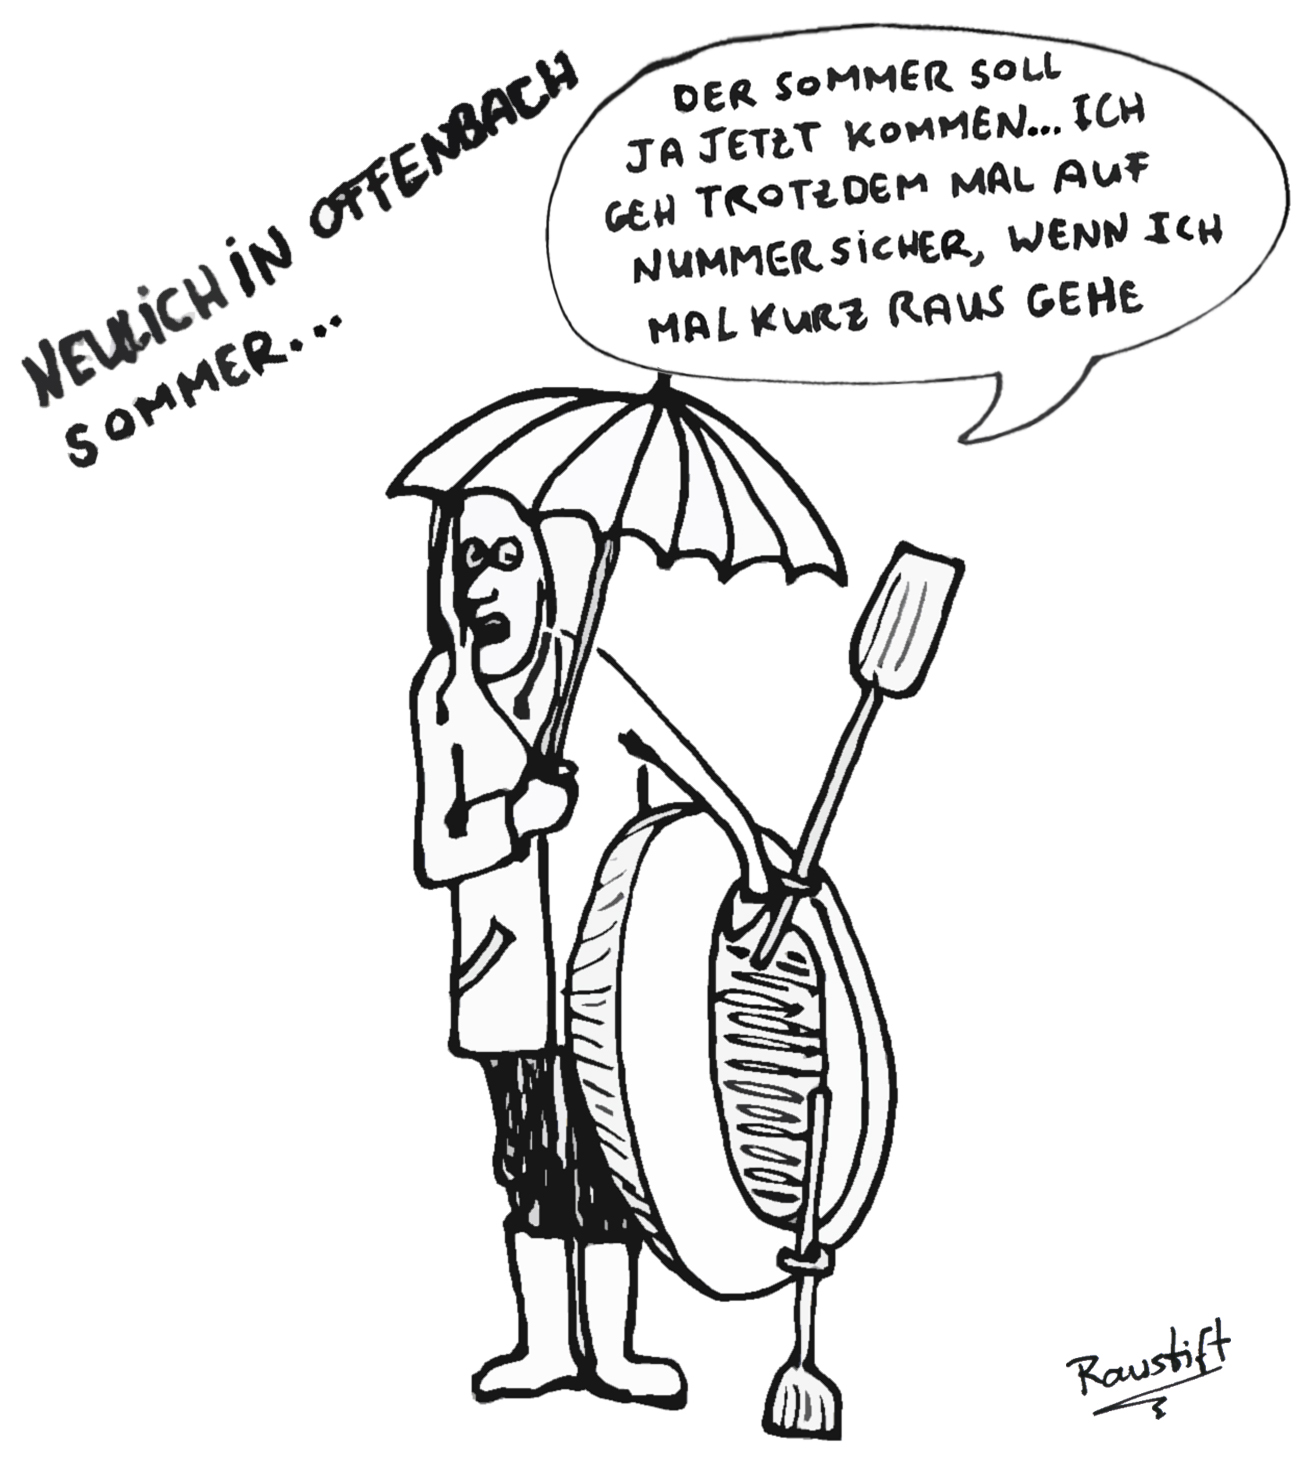 NEULICH IN OFFENBACH
SOMMER...
DER SOMMER SOLL
JA JETZT KOMMEN... ICH
GEH TROTZDEM MAL AUF
NUMMER SICHER, WENN ICH
MAL KURZ RAUS GEHE
Raustift